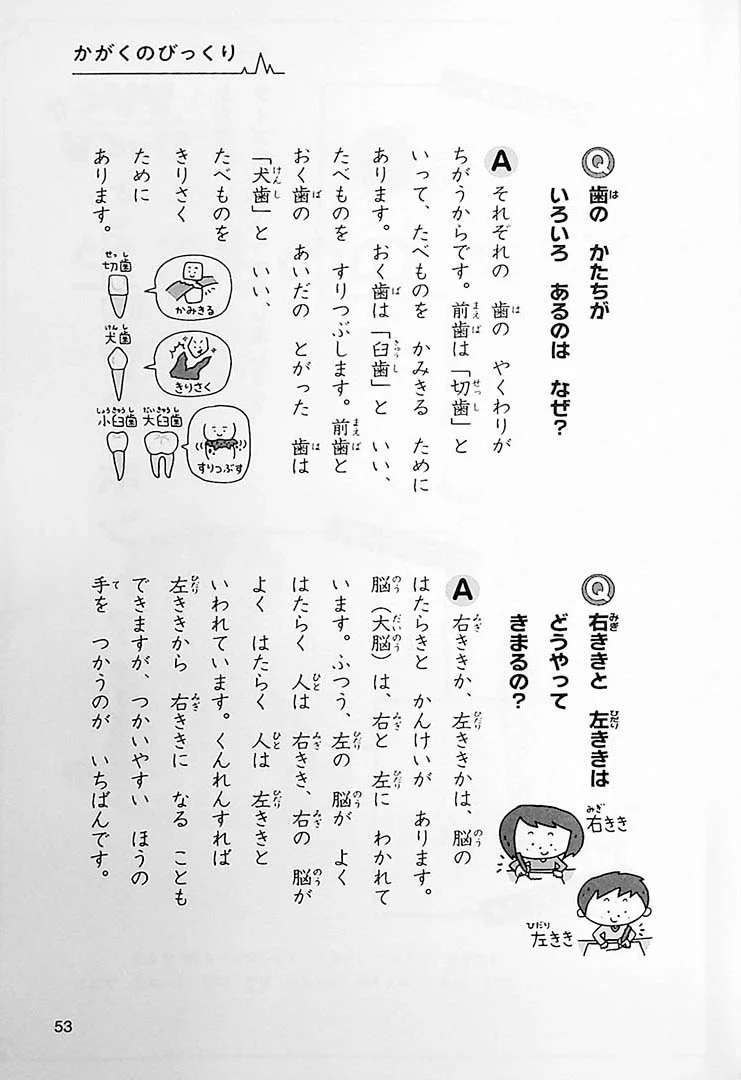 かがくのびっくり
Q 歯の かたちが
いろいろ あるのは なぜ？
A それぞれの 歯の やくわりが
ちがうからです。前歯は「切歯」と
いって、たべものを かみきる ために
あります。おく歯は「臼歯」と いい、
たべものを すりつぶします。前歯と
おく歯の あいだの とがった 歯は
「犬歯」と いい、
たべものを
きりさく
ために
あります。
切歯
かみきる
犬歯
きりさく
小臼歯 大臼歯
すりつぶす
Q 右ききと 左ききは
どうやって
きまるの？
A 右ききか、左ききかは、脳の
はたらきと かんけいが あります。
脳（大脳）は、右と 左に わかれて
います。ふつう、左の 脳が よく
はたらく 人は 右きき、右の 脳が
よく はたらく 人は 左ききと
いわれています。くんれんすれば
左ききから 右ききに なる ことも
できますが、つかいやすい ほうの
手を つかうのが いちばんです。
右きき
左きき
53